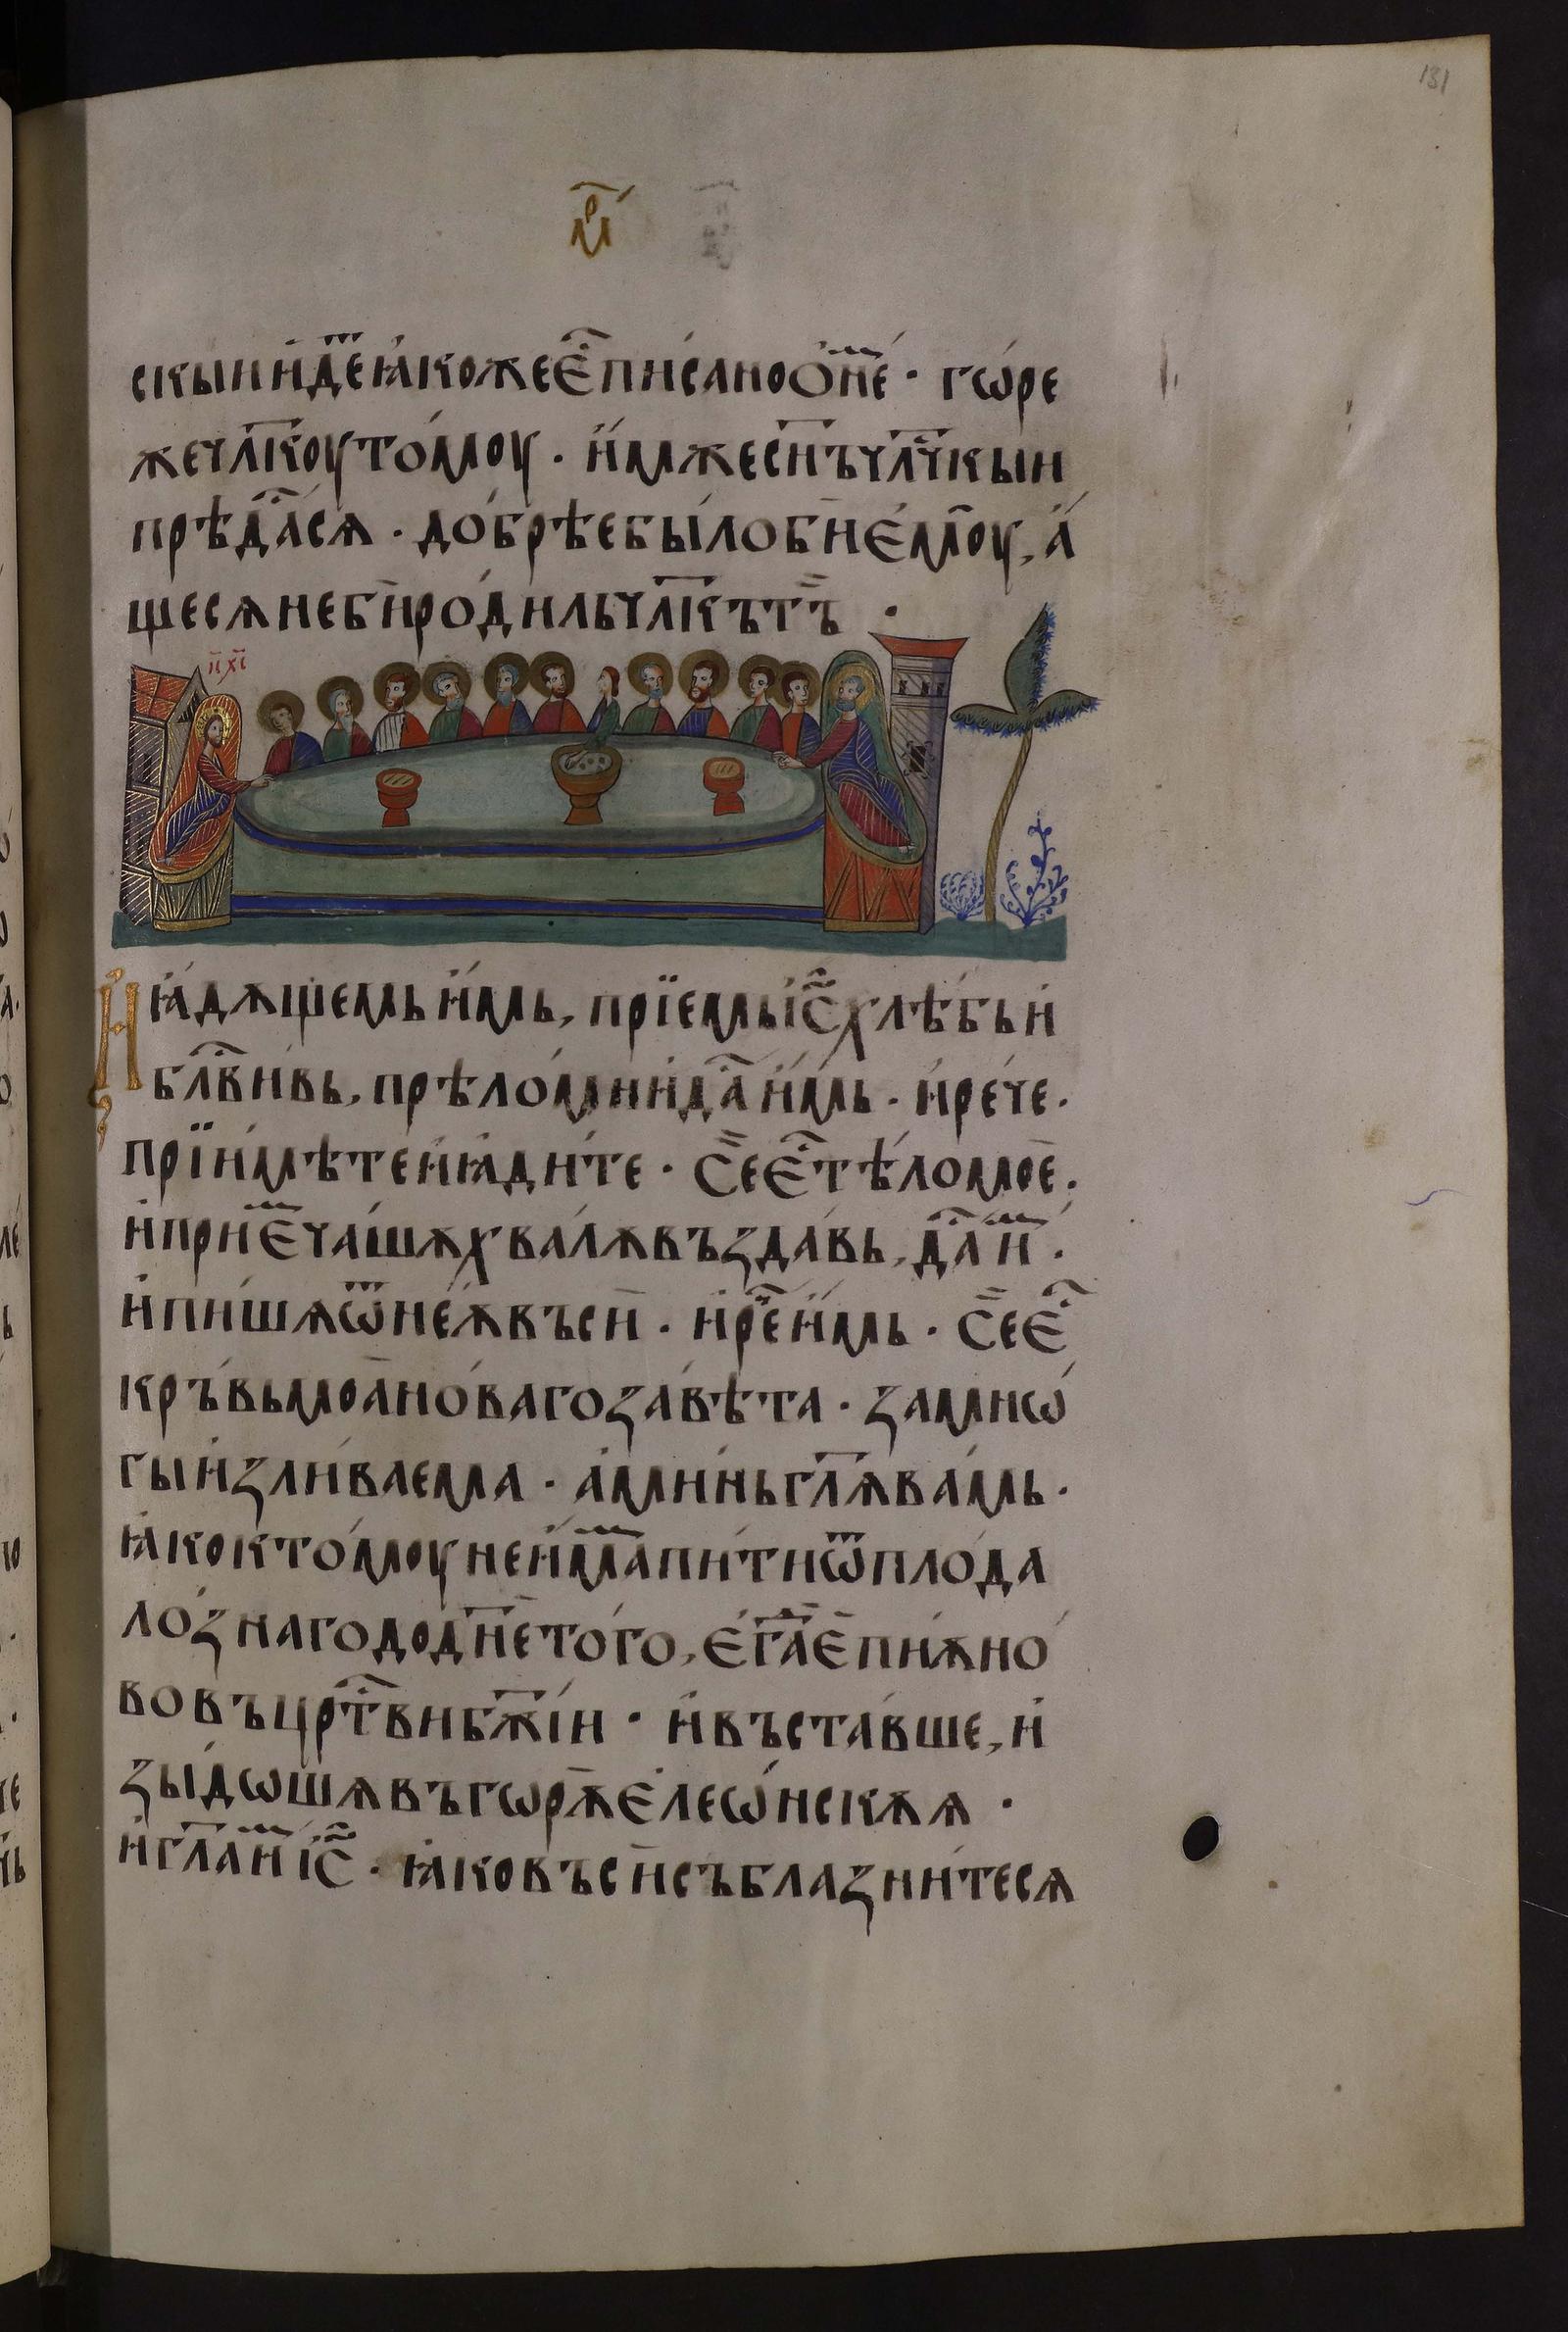 131
мр҃
скыи и҆де҃ꙗ҆коже є҆҃писано о҆не҃ · гѡ́ре
же чл҃коу то́моу · и҆мже сн҃ъ чл҃чкыи
прѣда҃сѧ · до́брѣе бы́ло би҃ є҆мо҃у, а҆
ще сѧ не би҃ роди́ль чл҃къ тъ҃ ·
і҃с х҃с
И ꙗ҆дѧщемь и҆мь, прїемь і҆с҃ хлѣ́бь и҆
бл҃ви́вь, прѣло́ми и҆ да҃ и҆мь · и҆ ре́че ·
прїимѣ́те и҆ ꙗ҆ди́те · се҃ є҆҃ тѣ́ло мое҃ ·
и҆ прие҃ ча́шѫ хвалѫ въздавь, да҃ и҃ ·
и҆ пи́шѧ ѿ неѫ въси҃ · и҆ ре҃ и҆мь · се҃ є҆҃
кръ́вь моа҃ но́ваго завѣ́та · за мнѡ́
гы и҆злива́ема · а҆ми́нь гл҃ѧ ва́мь ·
ꙗ҆ко ктомоу не и҆ма҃ пи́ти ѿ плода
ло́знаго до дн҃е того, є҆га҃ є҃ пиѫ но́
во въ цр҃тви бж҃їи · и҆ въста́вше, и҆
зыдѡшѧ въ гѡрѫ҃ є҆леѡ́нскѫѧ ·
и҆ гл҃а и҃ і҆с҃ · ꙗ҆ко въси҃ съблазни́те сѧ